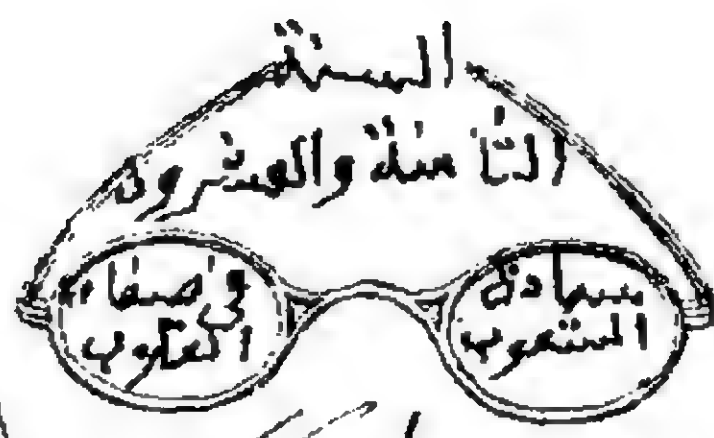 السنة
الثامنة والعشرون
الشعوب
واصفاء
القلوب